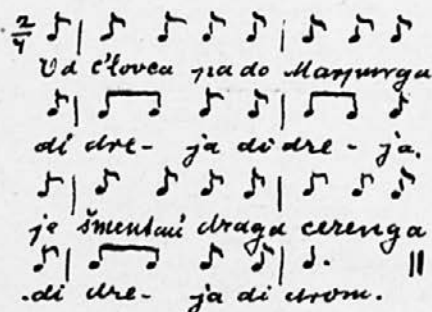 2/4
Od c'lovca pa do Marpurga
di dre- ja di dre - ja.
je šmentani draga cerenga
di dre- ja di drom.